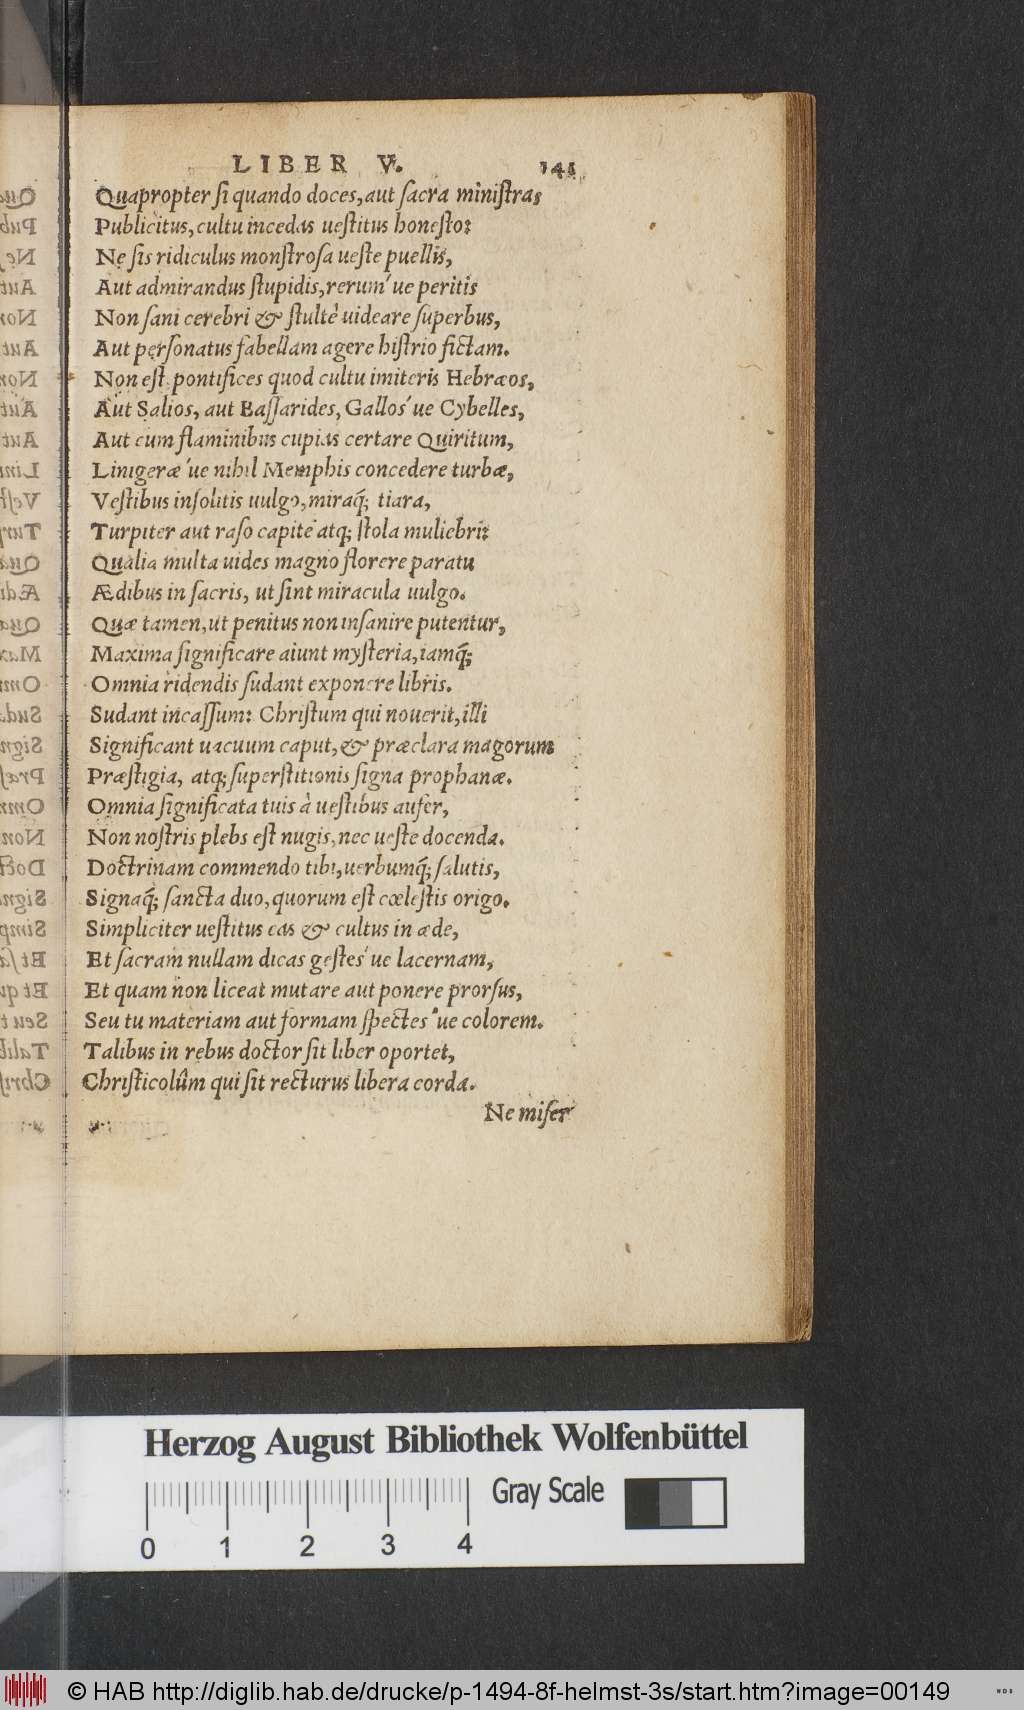 LIBER V. 141
Quapropter si quando doces, aut sacra ministras
Publicitus, cultu incedas uestitus honesto:
Ne sis ridiculus monstrosa ueste puellis,
Aut admirandus stupidis, rerum´ue peritis
Non sani cerebri & stultè uideare superbus,
Aut personatus fabellam agere histrio fictam.
Non est pontifices quod cultu imiteris Hebræos,
Aut Salios, aut Bassarides, Gallos´ue Cybelles,
Aut cum flaminibus cupias certare Quiritum,
Linigeræ´ue nihil Memphis concedere turbæ,
Vestibus insolitis uulgo, miraq́; tiara,
Turpiter aut raso capite atq; stola muliebri:
Qualia multa uides magno florere paratu
Ædibus in sacris, ut sint miracula uulgo.
Quæ tamen, ut penitus non insanire putentur,
Maxima significare aiunt mysteria, iamq́;
Omnia ridendis sudant exponere libris.
Sudant incassum: Christum qui nouerit, illi
Significant uacuum caput, & præclara magorum
Præstigia, atq; superstitionis signa prophanæ.
Omnia significata tuis à uestibus aufer,
Non nostris plebs est nugis, nec ueste docenda.
Doctrinam commendo tibi, uerbumq́; salutis,
Signaq́; sancta duo, quorum est cœlestis origo.
Simpliciter uestitus eas & cultus in æde,
Et sacram nullam dicas gestes´ue lacernam,
Et quam non liceat mutare aut ponere prorsus,
Seu tu materiam aut formam spectes´ue colorem.
Talibus in rebus doctor sit liber oportet,
Christicolûm qui sit recturus libera corda.
Ne miser
Herzog August Bibliothek Wolfenbüttel
Gray Scale
0 1 2 3 4
© HAB http://diglib.hab.de/drucke/p-1494-8f-helmst-3s/start.htm?image=00149